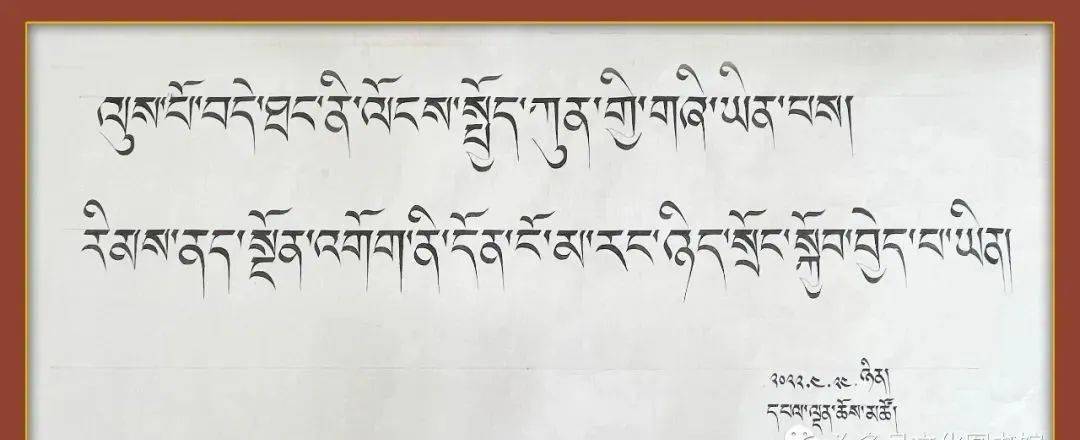 ལུས་པོ་བདེ་ཐང་ནི་ལོངས་སྤྱོད་ཀུན་གྱི་གཞི་ཡིན་པས།
རིམས་ནད་སྔོན་འགོག་ནི་དོན་ངོ་མ་རང་ཉིད་སྲོང་སྐྱོབ་བྱེད་པ་ཡིན།
༢༠༢༢.༤.༢༤.ཉིན།
དཔལ་ལྡན་ཆོས་མཚོ།